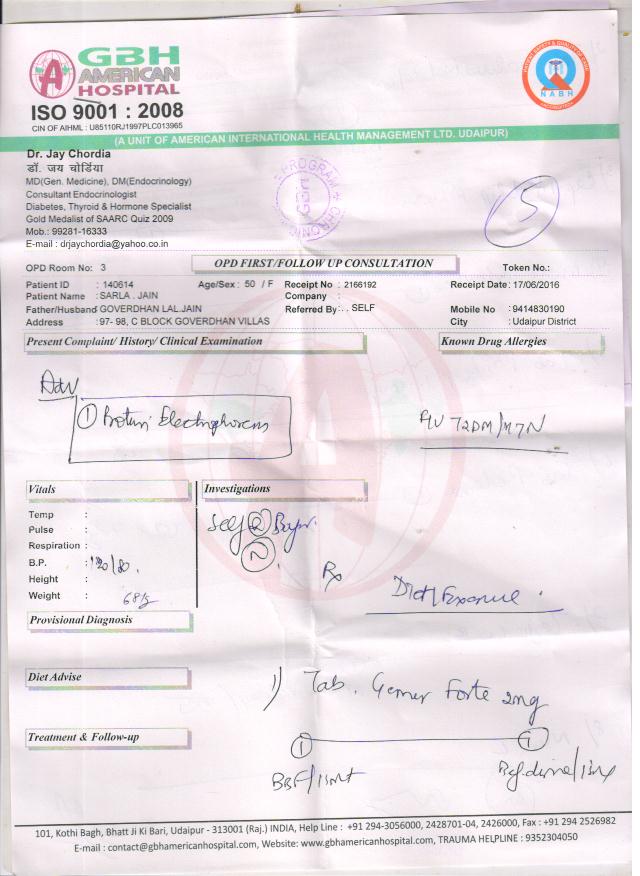 GBH
AMERICAN
HOSPITAL
ISO 9001 : 2008
CIN OF AIHML : U85110RJ1997PLC013965
NABH
(A UNIT OF AMERICAN INTERNATIONAL HEALTH MANAGEMENT LTD. UDAIPUR)
Dr. Jay Chordia
डॉ. जय चोर्डिया
MD(Gen. Medicine), DM(Endocrinology)
Consultant Endocrinologist
Diabetes, Thyroid & Hormone Specialist
Gold Medalist of SAARC Quiz 2009
Mob.: 99281-16333
E-mail : drjaychordia@yahoo.co.in
PROGRAM CHRONIC GBH
5
OPD Room No: 3 OPD FIRST/FOLLOW UP CONSULTATION Token No.:
Patient ID : 140614 Age/Sex : 50 / F Receipt No : 2166192 Receipt Date: 17/06/2016
Patient Name : SARLA . JAIN Company :
Father/Husband GOVERDHAN LAL.JAIN Referred By: . . SELF Mobile No : 9414830190
Address : 97- 98, C BLOCK GOVERDHAN VILLAS City : Udaipur District
Present Complaint/ History/ Clinical Examination Known Drug Allergies
Adv
① Protein Electrophoresis
F/U T2DM/HTN
Vitals Investigations
Temp :
Pulse :
Respiration :
B.P. : 130/80.
Height :
Weight : 68
N
Rx
Diet/Exercise.
Provisional Diagnosis
Diet Advise
1) Tab. Gemer Forte 2mg
Treatment & Follow-up
① ①
BBF/15mt Bef. dinner/15m
101, Kothi Bagh, Bhatt Ji Ki Bari, Udaipur - 313001 (Raj.) INDIA, Help Line : +91 294-3056000, 2428701-04, 2426000, Fax : +91 294 2526982
E-mail : contact@gbhamericanhospital.com, Website: www.gbhamericanhospital.com, TRAUMA HELPLINE : 9352304050